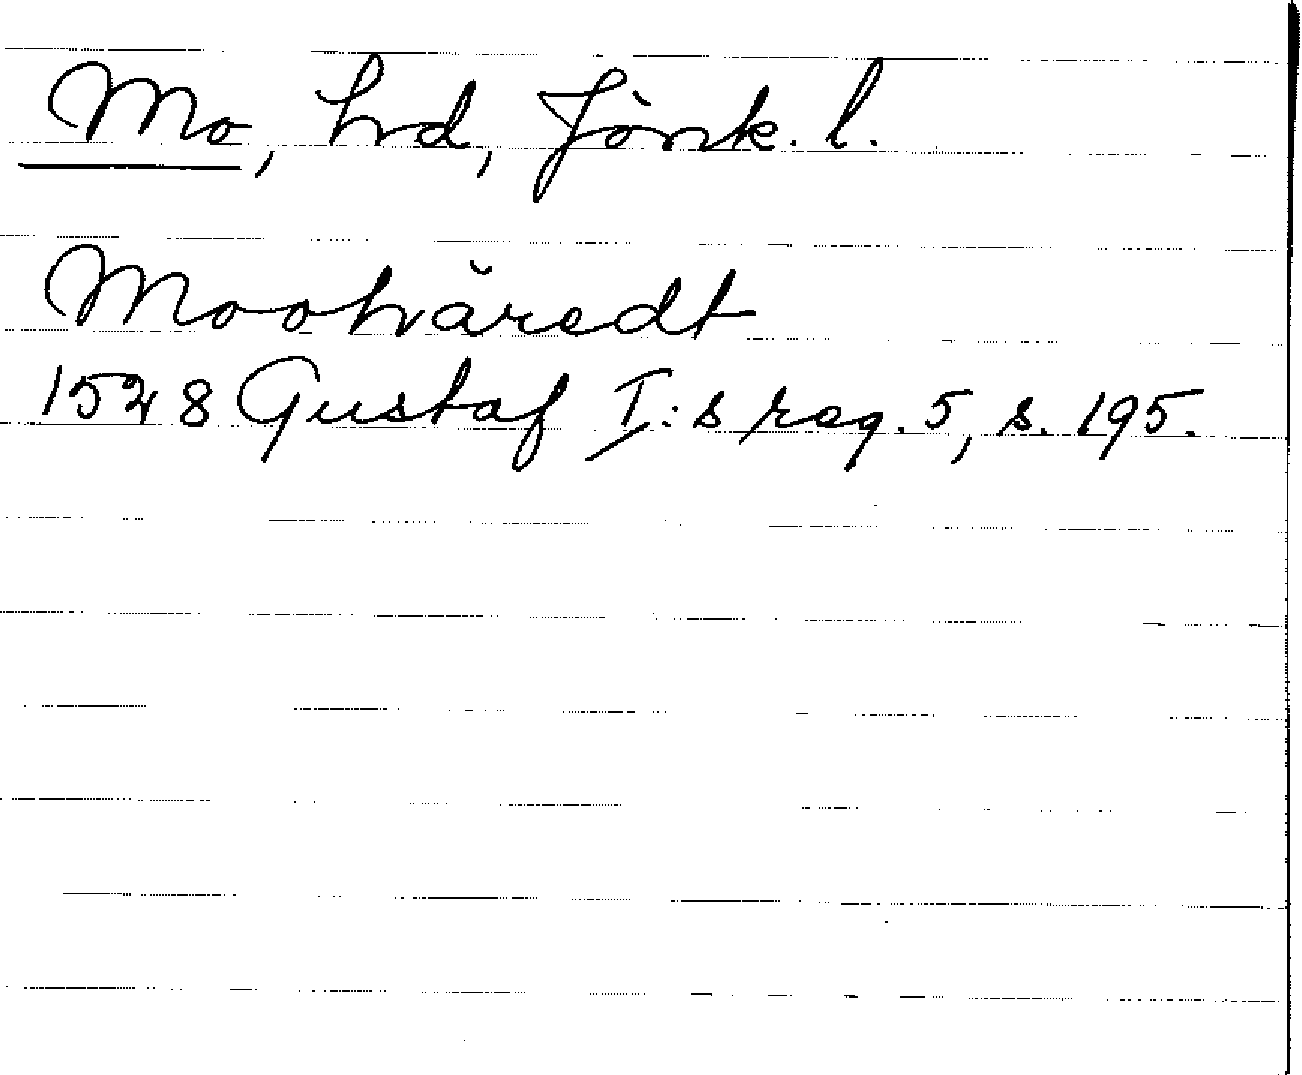 Mo, hd, Jönk. l.
Moohäredt
1528 Gustaf I:s reg. 5, s. 195.